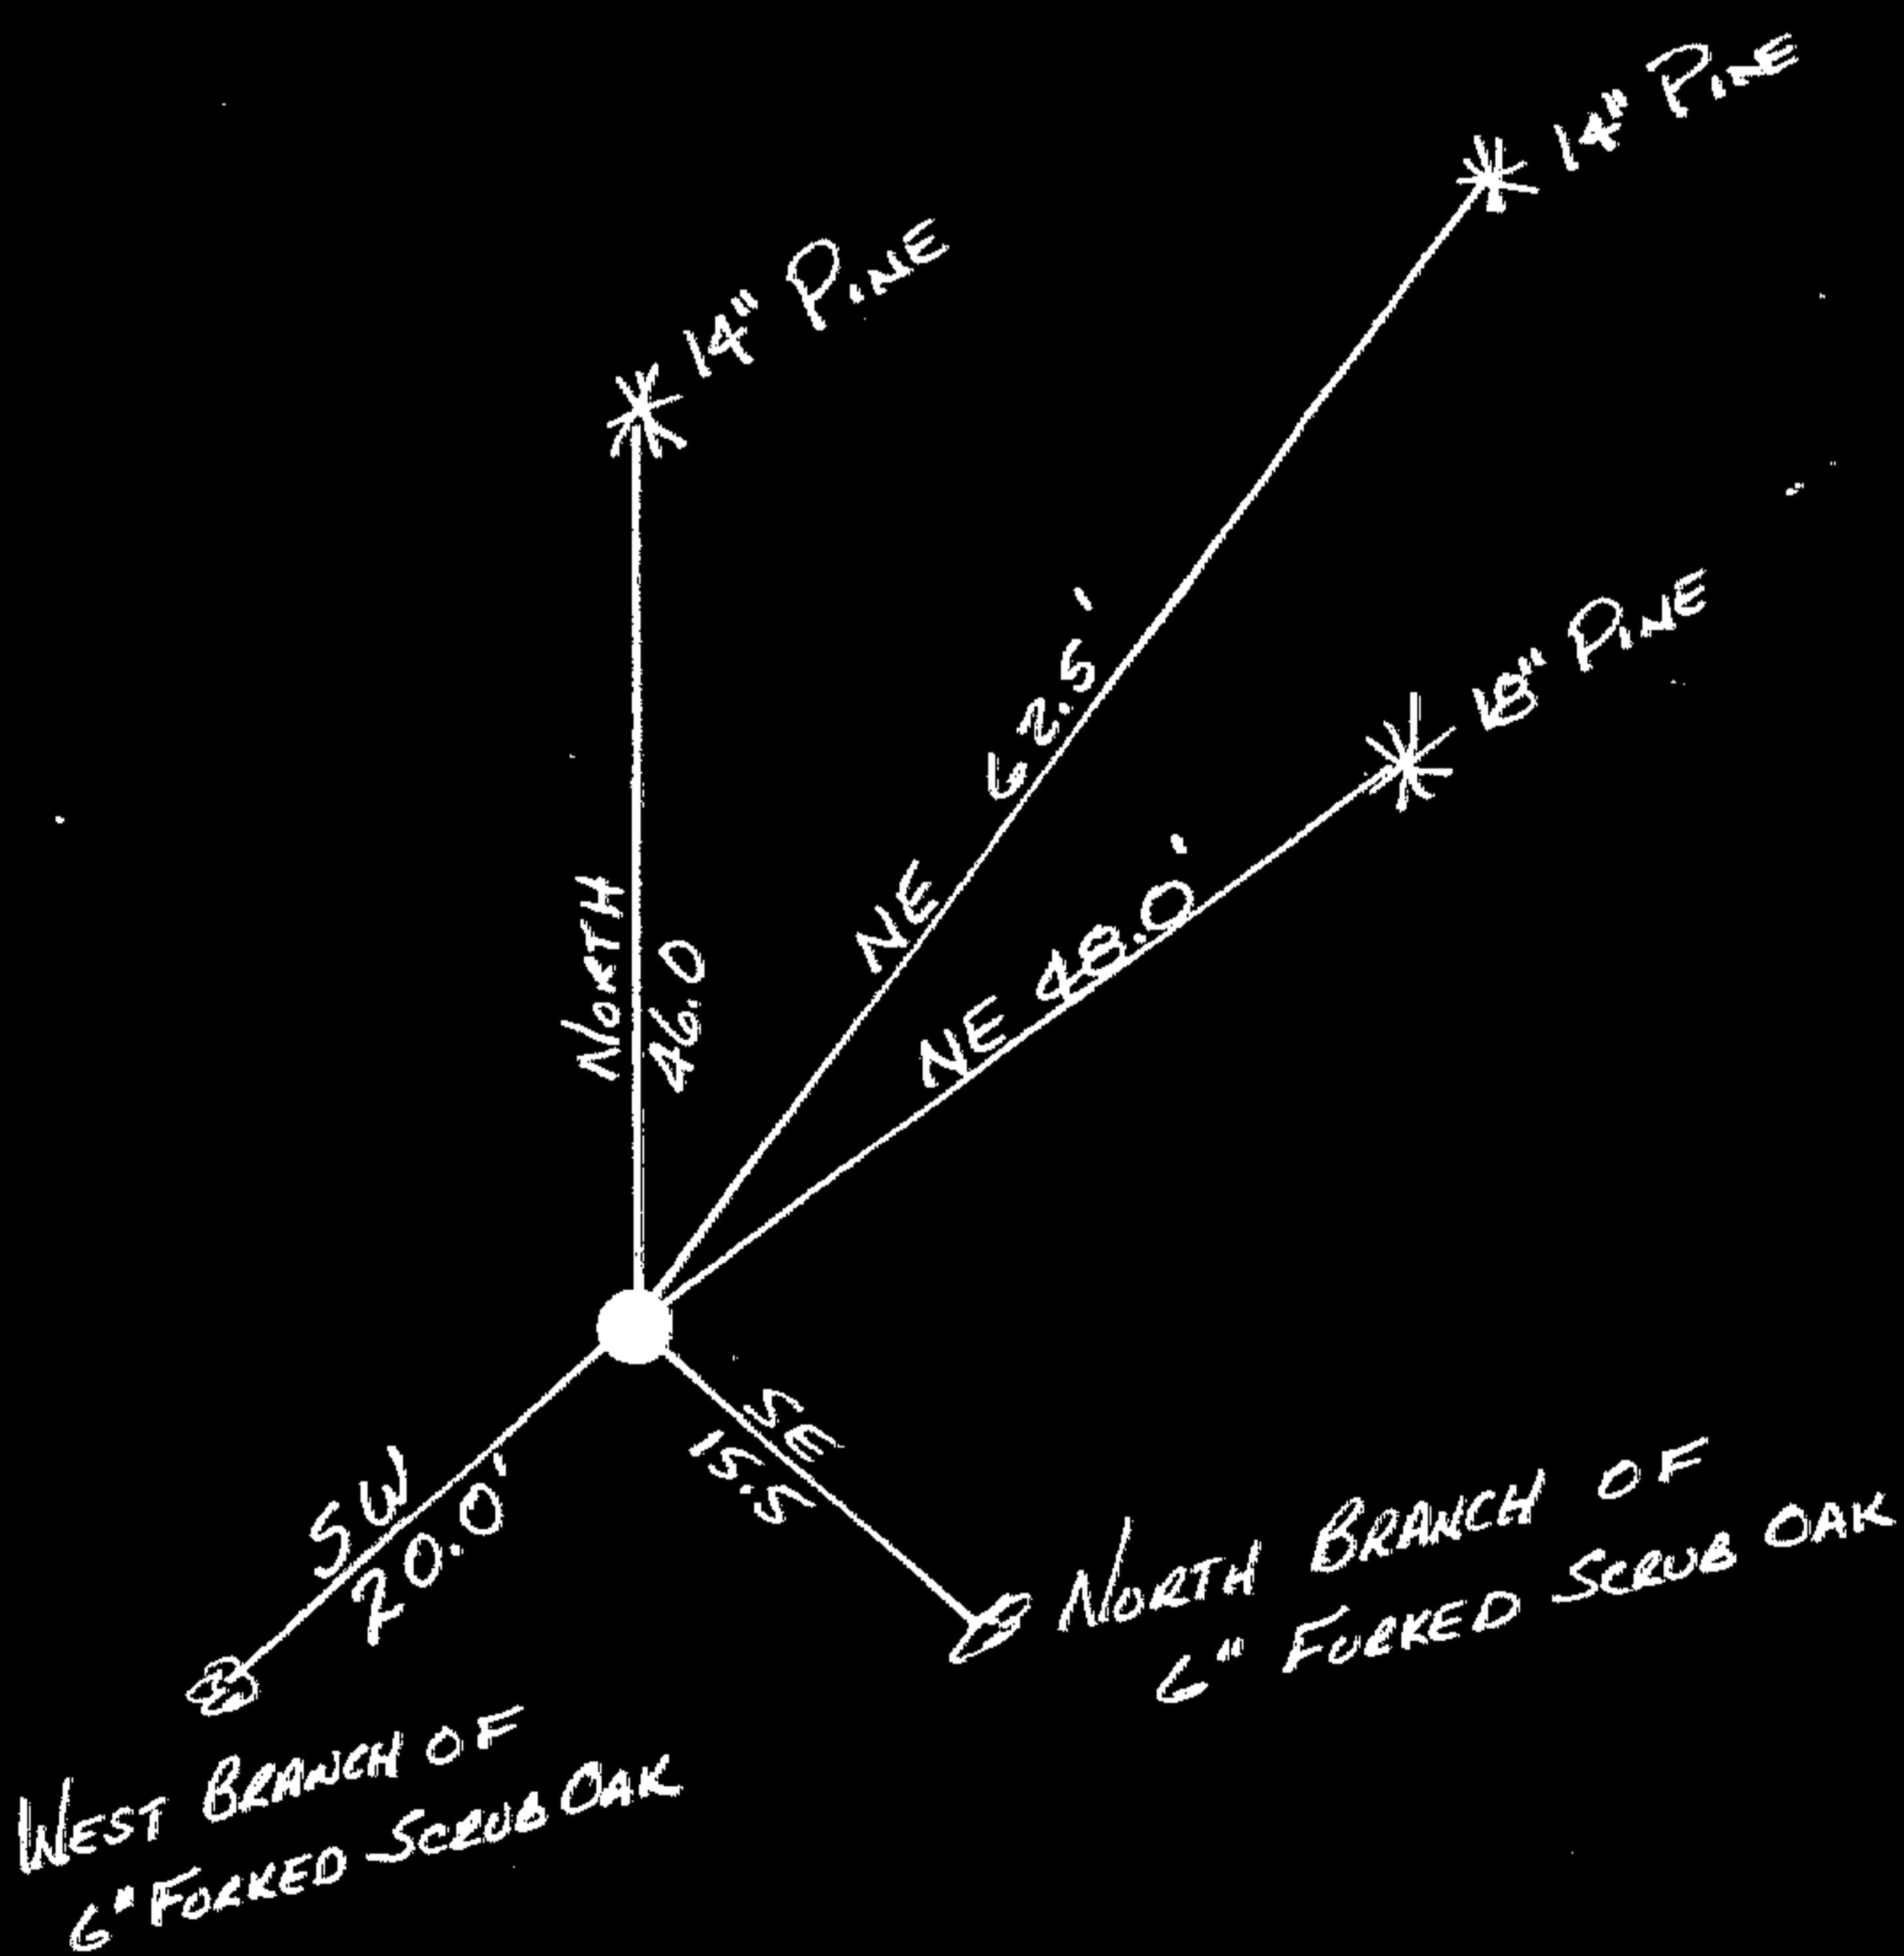 14" PINE
14" PINE
18" PINE
NORTH
46.0
NE 62.5'
NE 48.0'
SW
20.0'
SE
15.5
NORTH BRANCH OF
6" FORKED SCRUB OAK
WEST BRANCH OF
6" FORKED SCRUB OAK